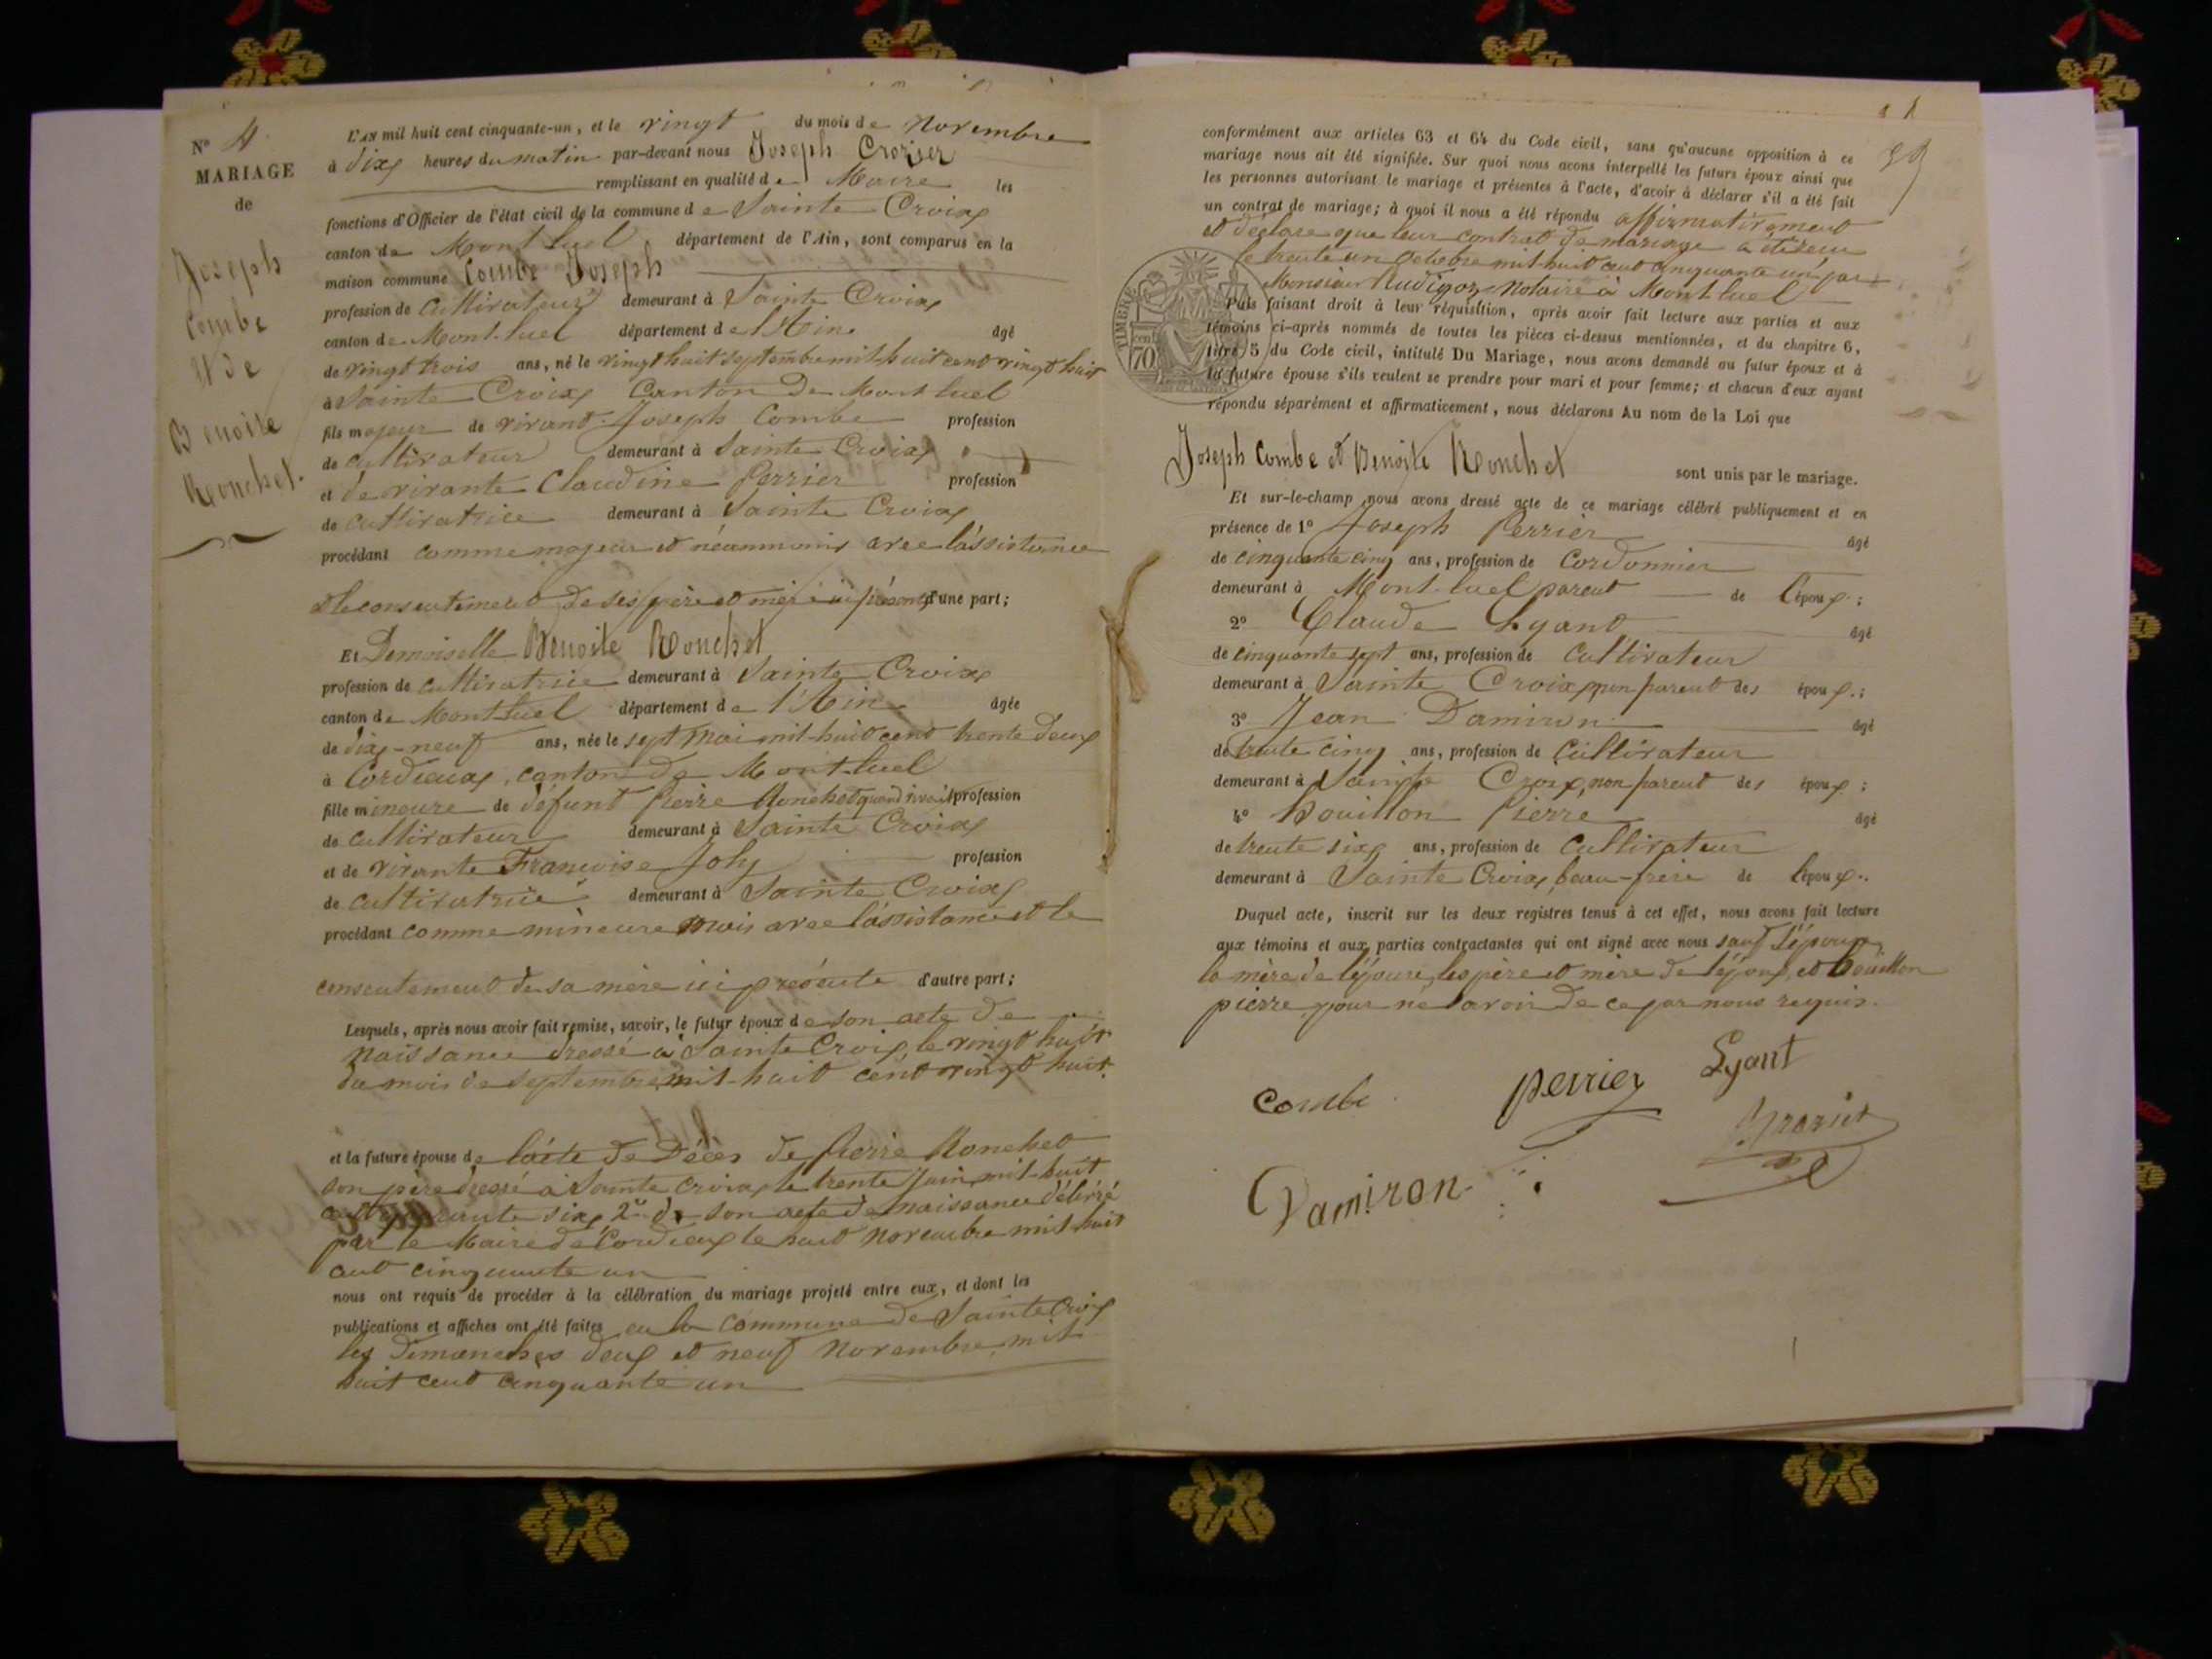 N° 4
MARIAGE
de
Joseph
Combe
Et de
Benoite
Ronchet.
L'AN mil huit cent cinquante-un, et le vingt du mois de Novembre
à dix heures du matin par-devant nous Joseph Crozier
remplissant en qualité de Maire les
fonctions d'Officier de l'état civil de la commune de Sainte Croix
canton de Mont luel département de l'Ain, sont comparus en la
maison commune Combe Joseph
profession de Cultivateur demeurant à Sainte Croix
canton de Mont-luel département de l'Ain âgé
de vingt trois ans, né le vingt huit septembre mil huit cent vingt huit
à Sainte Croix Canton de Mont luel
fils majeur de vivant Joseph Combe profession
de cultivateur demeurant à Sainte Croix
et de vivante Claudine Perrier profession
de cultivatrice demeurant à Sainte Croix
procédant comme majeur et néanmoins avec l'assistance
et le consentement de ses père et mère ici présents d'une part;
Et Demoiselle Benoite Ronchet
profession de cultivatrice demeurant à Sainte Croix
canton de Mont-luel département de l'Ain âgée
de dix-neuf ans, née le sept Mai mil-huit cent trente deux
à Cordieux, canton de Mont-luel
fille mineure de défunt Pierre Ronchet quand vivait profession
de cultivateur demeurant à Sainte Croix
et de vivante Françoise Joly profession
de cultivatrice demeurant à Sainte Croix
procédant comme mineure mais avec l'assistance et le
consentement de sa mère ici présente d'autre part;
Lesquels, après nous avoir fait remise, savoir, le futur époux de son acte de
Naissance dressé à Sainte Croix le vingt huit
du mois de septembre mil-huit cent vingt huit.
et la future épouse de l'acte de Décès de Pierre Ronchet
son père dressé à Sainte Croix le trente Juin mil-huit
cent quarante six, 2° de son acte de naissance délivré
par le Maire de Cordieux le huit Novembre mil huit
cent cinquante un
nous ont requis de procéder à la célébration du mariage projeté entre eux, et dont les
publications et affiches ont été faites en la commune de Sainte Croix
les Dimanches deux et neuf Novembre mil
huit cent cinquante un
conformément aux articles 63 et 64 du Code civil, sans qu'aucune opposition à ce
mariage nous ait été signifiée. Sur quoi nous avons interpellé les futurs époux ainsi que
les personnes autorisant le mariage et présentes à l'acte, d'avoir à déclarer s'il a été fait
un contrat de mariage; à quoi il nous a été répondu affirmativement
et déclare que leur contrat de mariage a été reçu
le trente un Octobre mil-huit cent cinquante un par
Monsieur Rudigoz Notaire à Mont-luel
TIMBRE
70 cent
Puis faisant droit à leur réquisition, après avoir fait lecture aux parties et aux
témoins ci-après nommés de toutes les pièces ci-dessus mentionnées, et du chapitre 6,
titre 5 du Code civil, intitulé Du Mariage, nous avons demandé au futur époux et à
la future épouse s'ils veulent se prendre pour mari et pour femme; et chacun d'eux ayant
répondu séparément et affirmativement, nous déclarons Au nom de la Loi que
Joseph Combe et Benoite Ronchet sont unis par le mariage.
Et sur-le-champ nous avons dressé acte de ce mariage célébré publiquement et en
présence de 1° Joseph Perrier âgé
de cinquante cinq ans, profession de Cordonnier
demeurant à Mont-luel parent de l'époux;
2° Claude Lyant âgé
de cinquante sept ans, profession de Cultivateur
demeurant à Sainte Croix, non parent des époux;
3° Jean Damiron âgé
de trente cinq ans, profession de Cultivateur
demeurant à Sainte Croix, non parent des époux;
4° Bouillon Pierre âgé
de trente six ans, profession de Cultivateur
demeurant à Sainte Croix, beau-frère de l'époux.
Duquel acte, inscrit sur les deux registres tenus à cet effet, nous avons fait lecture
aux témoins et aux parties contractantes qui ont signé avec nous sauf l'épouse,
la mère de l'épouse, les père et mère de l'époux, et Bouillon
pierre, pour ne savoir de ce par nous requis.
Combe Perrier Lyant
Damiron Crozier